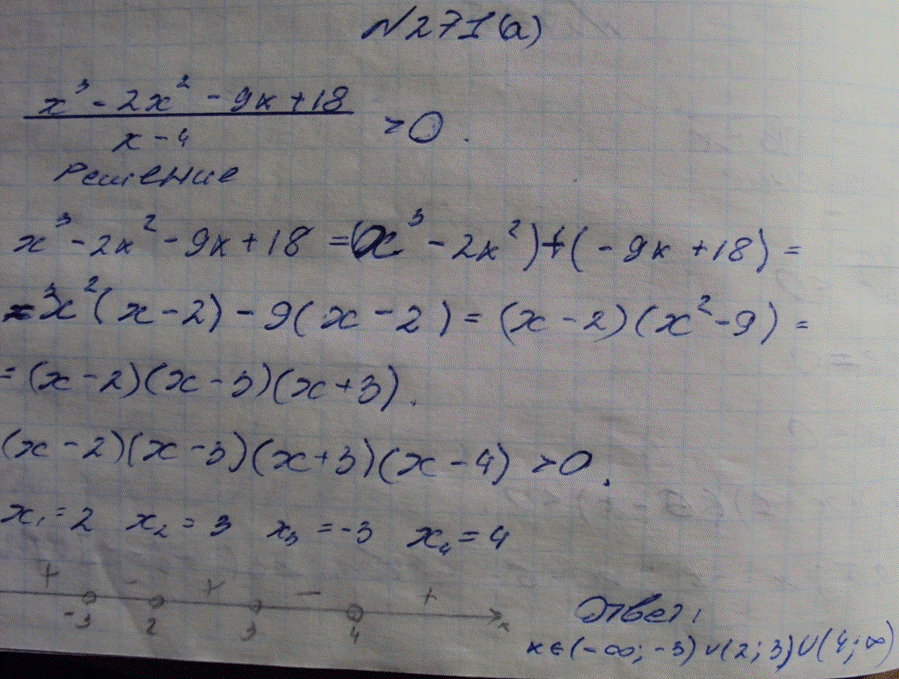 №271(а)
x³ - 2x² - 9x + 18
x - 4
> 0.
Решение
x³ - 2x² - 9x + 18 = (x³ - 2x²) + (- 9x + 18) =
= x²(x - 2) - 9(x - 2) = (x - 2)(x² - 9) =
= (x - 2)(x - 3)(x + 3).
(x - 2)(x - 3)(x + 3)(x - 4) > 0.
x₁ = 2 x₂ = 3 x₃ = -3 x₄ = 4
+ - + - +
-3 2 3 4 x
Ответ:
x ∈ (- ∞; -3) ∪ (2; 3) ∪ (4; ∞)